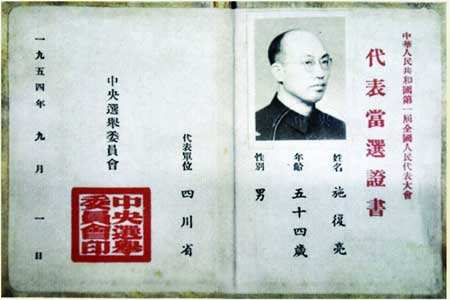 中華人民共和國第一屆全國人民代表大會
代表當選證書
姓名 施復亮
年齡 五十四歲
性別 男
代表單位 四川省
中央選舉委員會
一九五四年九月一日
中央選舉
委員會印